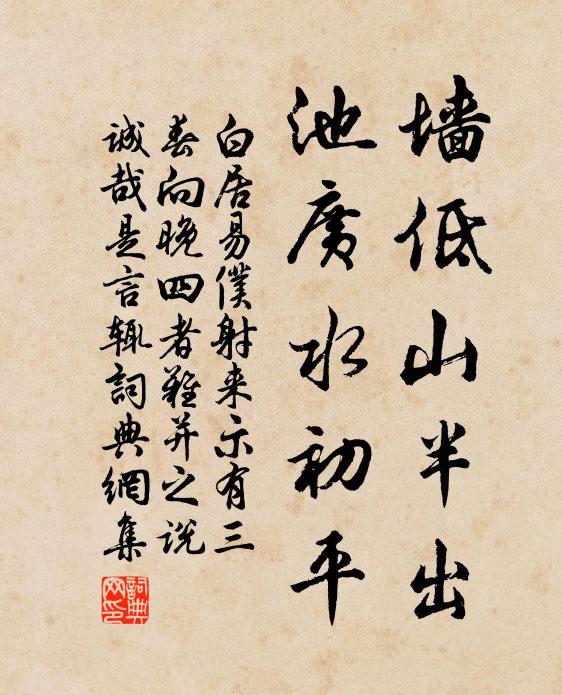 墙低山半出
池廣水初平
白居易僕射来示有三
春向晚四者難并之说
诚哉是言辄詞典網集
詞典网印